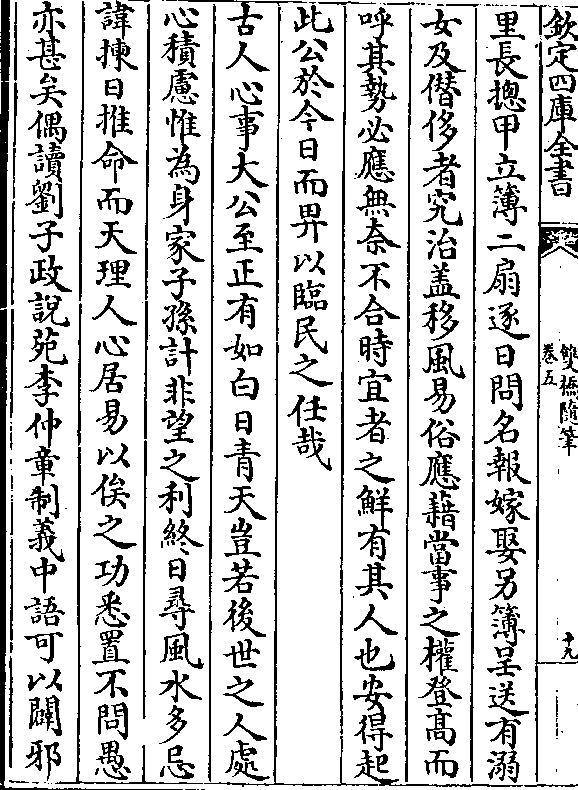 欽定四庫全書
雙橋隨筆
卷五
十九
里長摠甲立簿二扇逐日問名報嫁娶另簿呈送有溺
女及僭侈者究治盖移風易俗應藉當事之權登高而
呼其勢必應無奈不合時宜者之鮮有其人也安得起
此公於今日而畀以臨民之任哉
古人心事大公至正有如白日青天豈若後世之人處
心積慮惟為身家子孫計非望之利終日尋風水多忌
諱揀日推命而天理人心居易以俟之功悉置不問愚
亦甚矣偶讀劉子政說苑李仲章制義中語可以闢邪